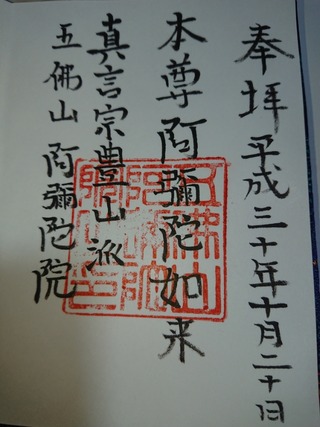 奉拝 平成三十年十月二十日
本尊 阿彌陀如来
真言宗豊山派
五佛山 阿彌陀院